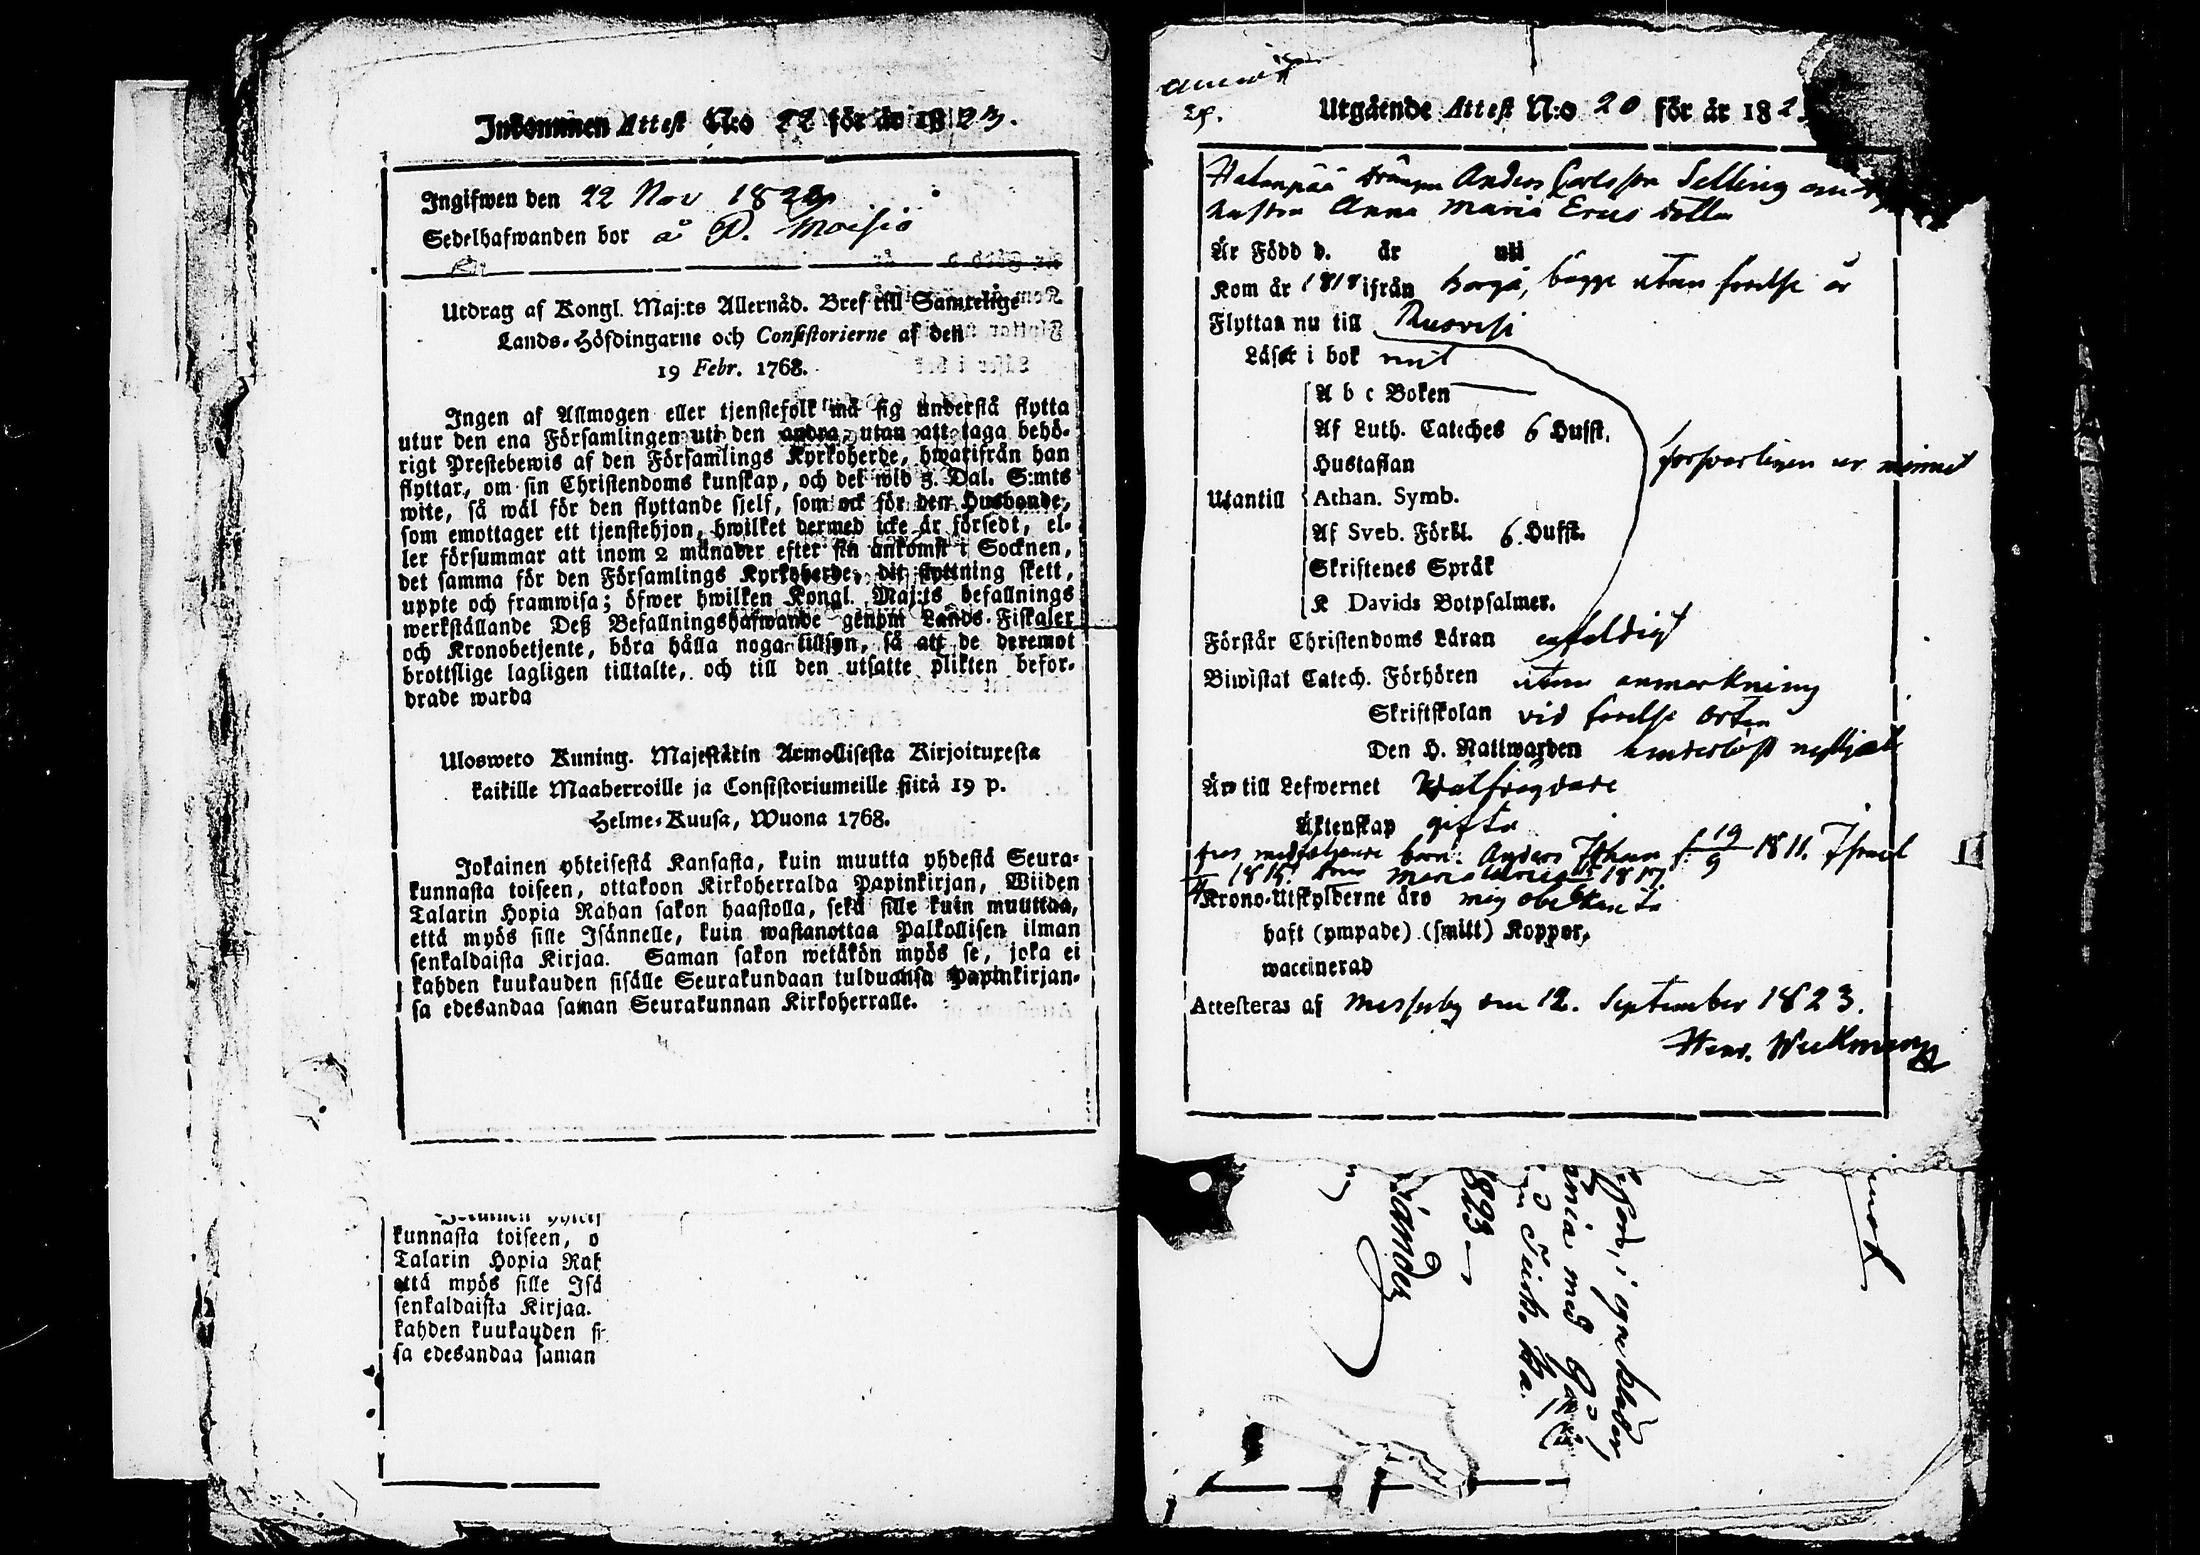 Inkommen Attest N:o 22 för år 1823.
Ingifwen den 22 Nov 1823
Sedelhafwanden bor å P. Moisio
Utdrag af Kongl. Maj:ts Allernåd. Bref till Samtelige
Lands-Höfdingarne och Consistorierne af den
19 Febr. 1768.
Ingen af Allmogen eller tjenstefolk må sig understå flytta
utur den ena Församlingen uti den andra, utan att taga behö-
rigt Prestebewis af den Församlings Kyrkoherde, hwarifrån han
flyttar, om sin Christendoms kunskap, och det wid 3. Dal. S:mts
wite, så wäl för den flyttande sjelf, som ock för den Husbonde,
som emottager ett tjenstehjon, hwilket dermed icke är försedt, el-
ler försummar att inom 2 månader efter sin ankomst i Socknen,
det samma för den Församlings Kyrkoherde, dit flyttning skett,
uppte och framwisa; öfwer hwilken Kongl. Maj:ts befallnings
werkställande Deß Befallningshafwande genom Lands-Fiskaler
och Kronobetjente, böra hålla noga tillsyn, så att de deremot
brottslige lagligen tilltalte, och till den utsatte plikten befor-
drade warda
Ulosweto Kuning. Majestätin Armollisesta Kirjoituxesta
kaikille Maaherroille ja Consistoriumeille siitä 19 p.
Helme-Kuusa, Wuona 1768.
Jokainen yhteisestä Kansasta, kuin muutta yhdestä Seura-
kunnasta toiseen, ottakoon Kirkoherralda Papinkirjan, Wiiden
Talarin Hopia Rahan sakon haastolla, sekä sille kuin muuttaa,
että myös sille Isännelle, kuin wastanottaa Palkollisen ilman
senkaldaista Kirjaa. Saman sakon wetäkön myös se, joka ei
kahden kuukauden sisälle Seurakundaan tulduansa Papinkirjan-
sa edesandaa saman Seurakunnan Kirkoherralle.
kunnasta toiseen, o
Talarin Hopia Rah
että myös sille Isä
senkaldaista Kirjaa.
kahden kuukauden si
sa edesandaa saman
Utgående Attest N:o 20 för år 182
Hatanpää Drängen Anders Carlsson Selling
hustru Anna Maria Ericsdotter
Är Född d. år uti
Kom år 1818 ifrån Borgå, begge utan
Flyttar nu till Ruovesi
Läser i bok
A b c Boken
Af Luth. Cateches 6 Hufst.
Hustaflan
Utantill Athan. Symb.
Af Sveb. Förkl. 6 Hufst.
Skriftenes Språk
K Davids Botpsalmer.
Förstår Christendoms Läran enfaldigt
Biwistat Catech. Förhören utan anmärkning
Skriftskolan vid orten
Den H. Nattwarden
Är till Lefwernet Wälfrägdade
Äktenskap gifta
barn: Anders Johan f. 19/9 1811.
Krono-Utskylderne äro mig obekanta
haft (ympade) (smitt) Koppor.
waccinerad
Attesteras af Messuby den 12. September 1823.
Henr. Weckman
1823